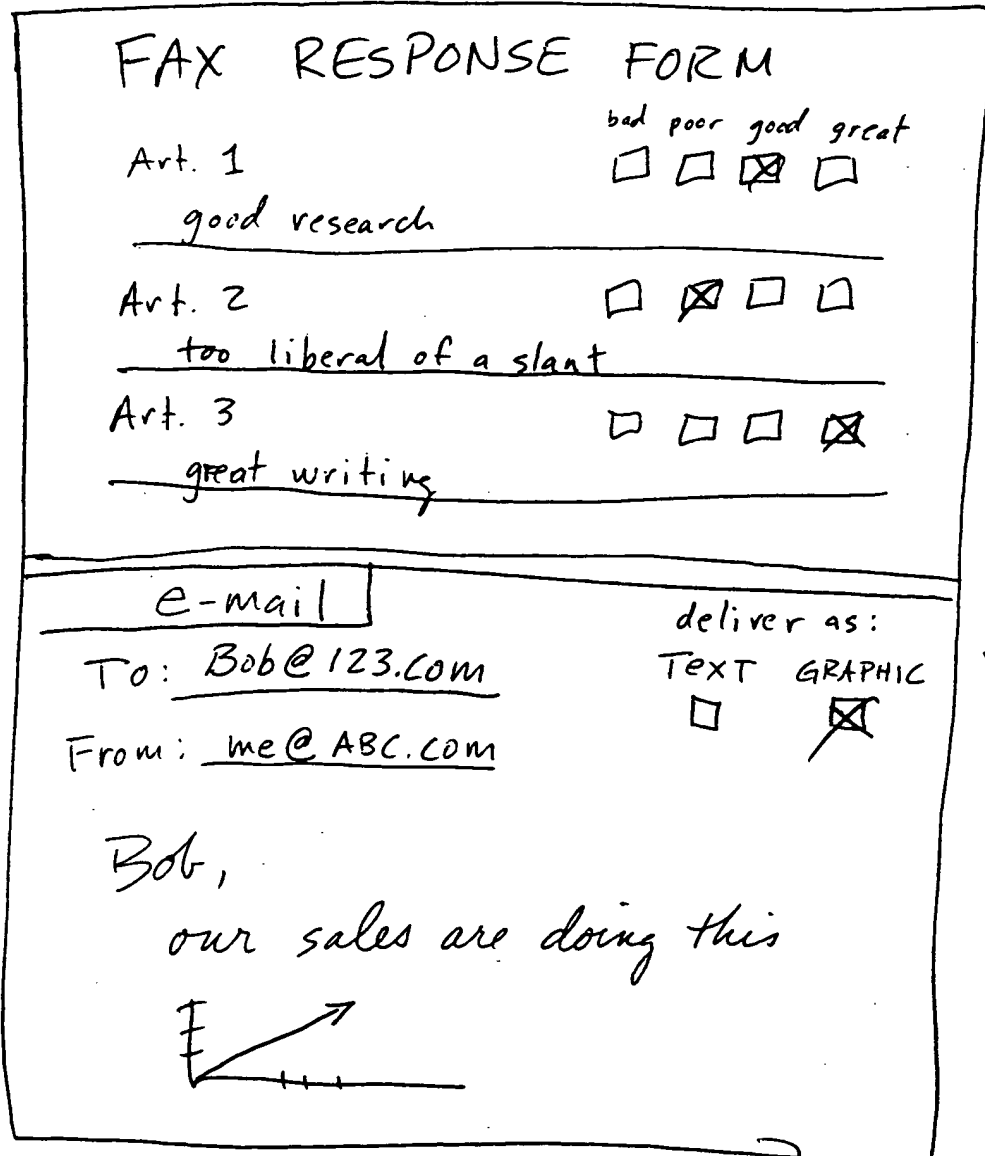 FAX RESPONSE FORM
bad poor good great
Art. 1
good research
Art. 2
too liberal of a slant
Art. 3
great writing
e-mail
deliver as:
To: Bob@123.com
TEXT GRAPHIC
From: me@ABC.com
Bob,
our sales are doing this